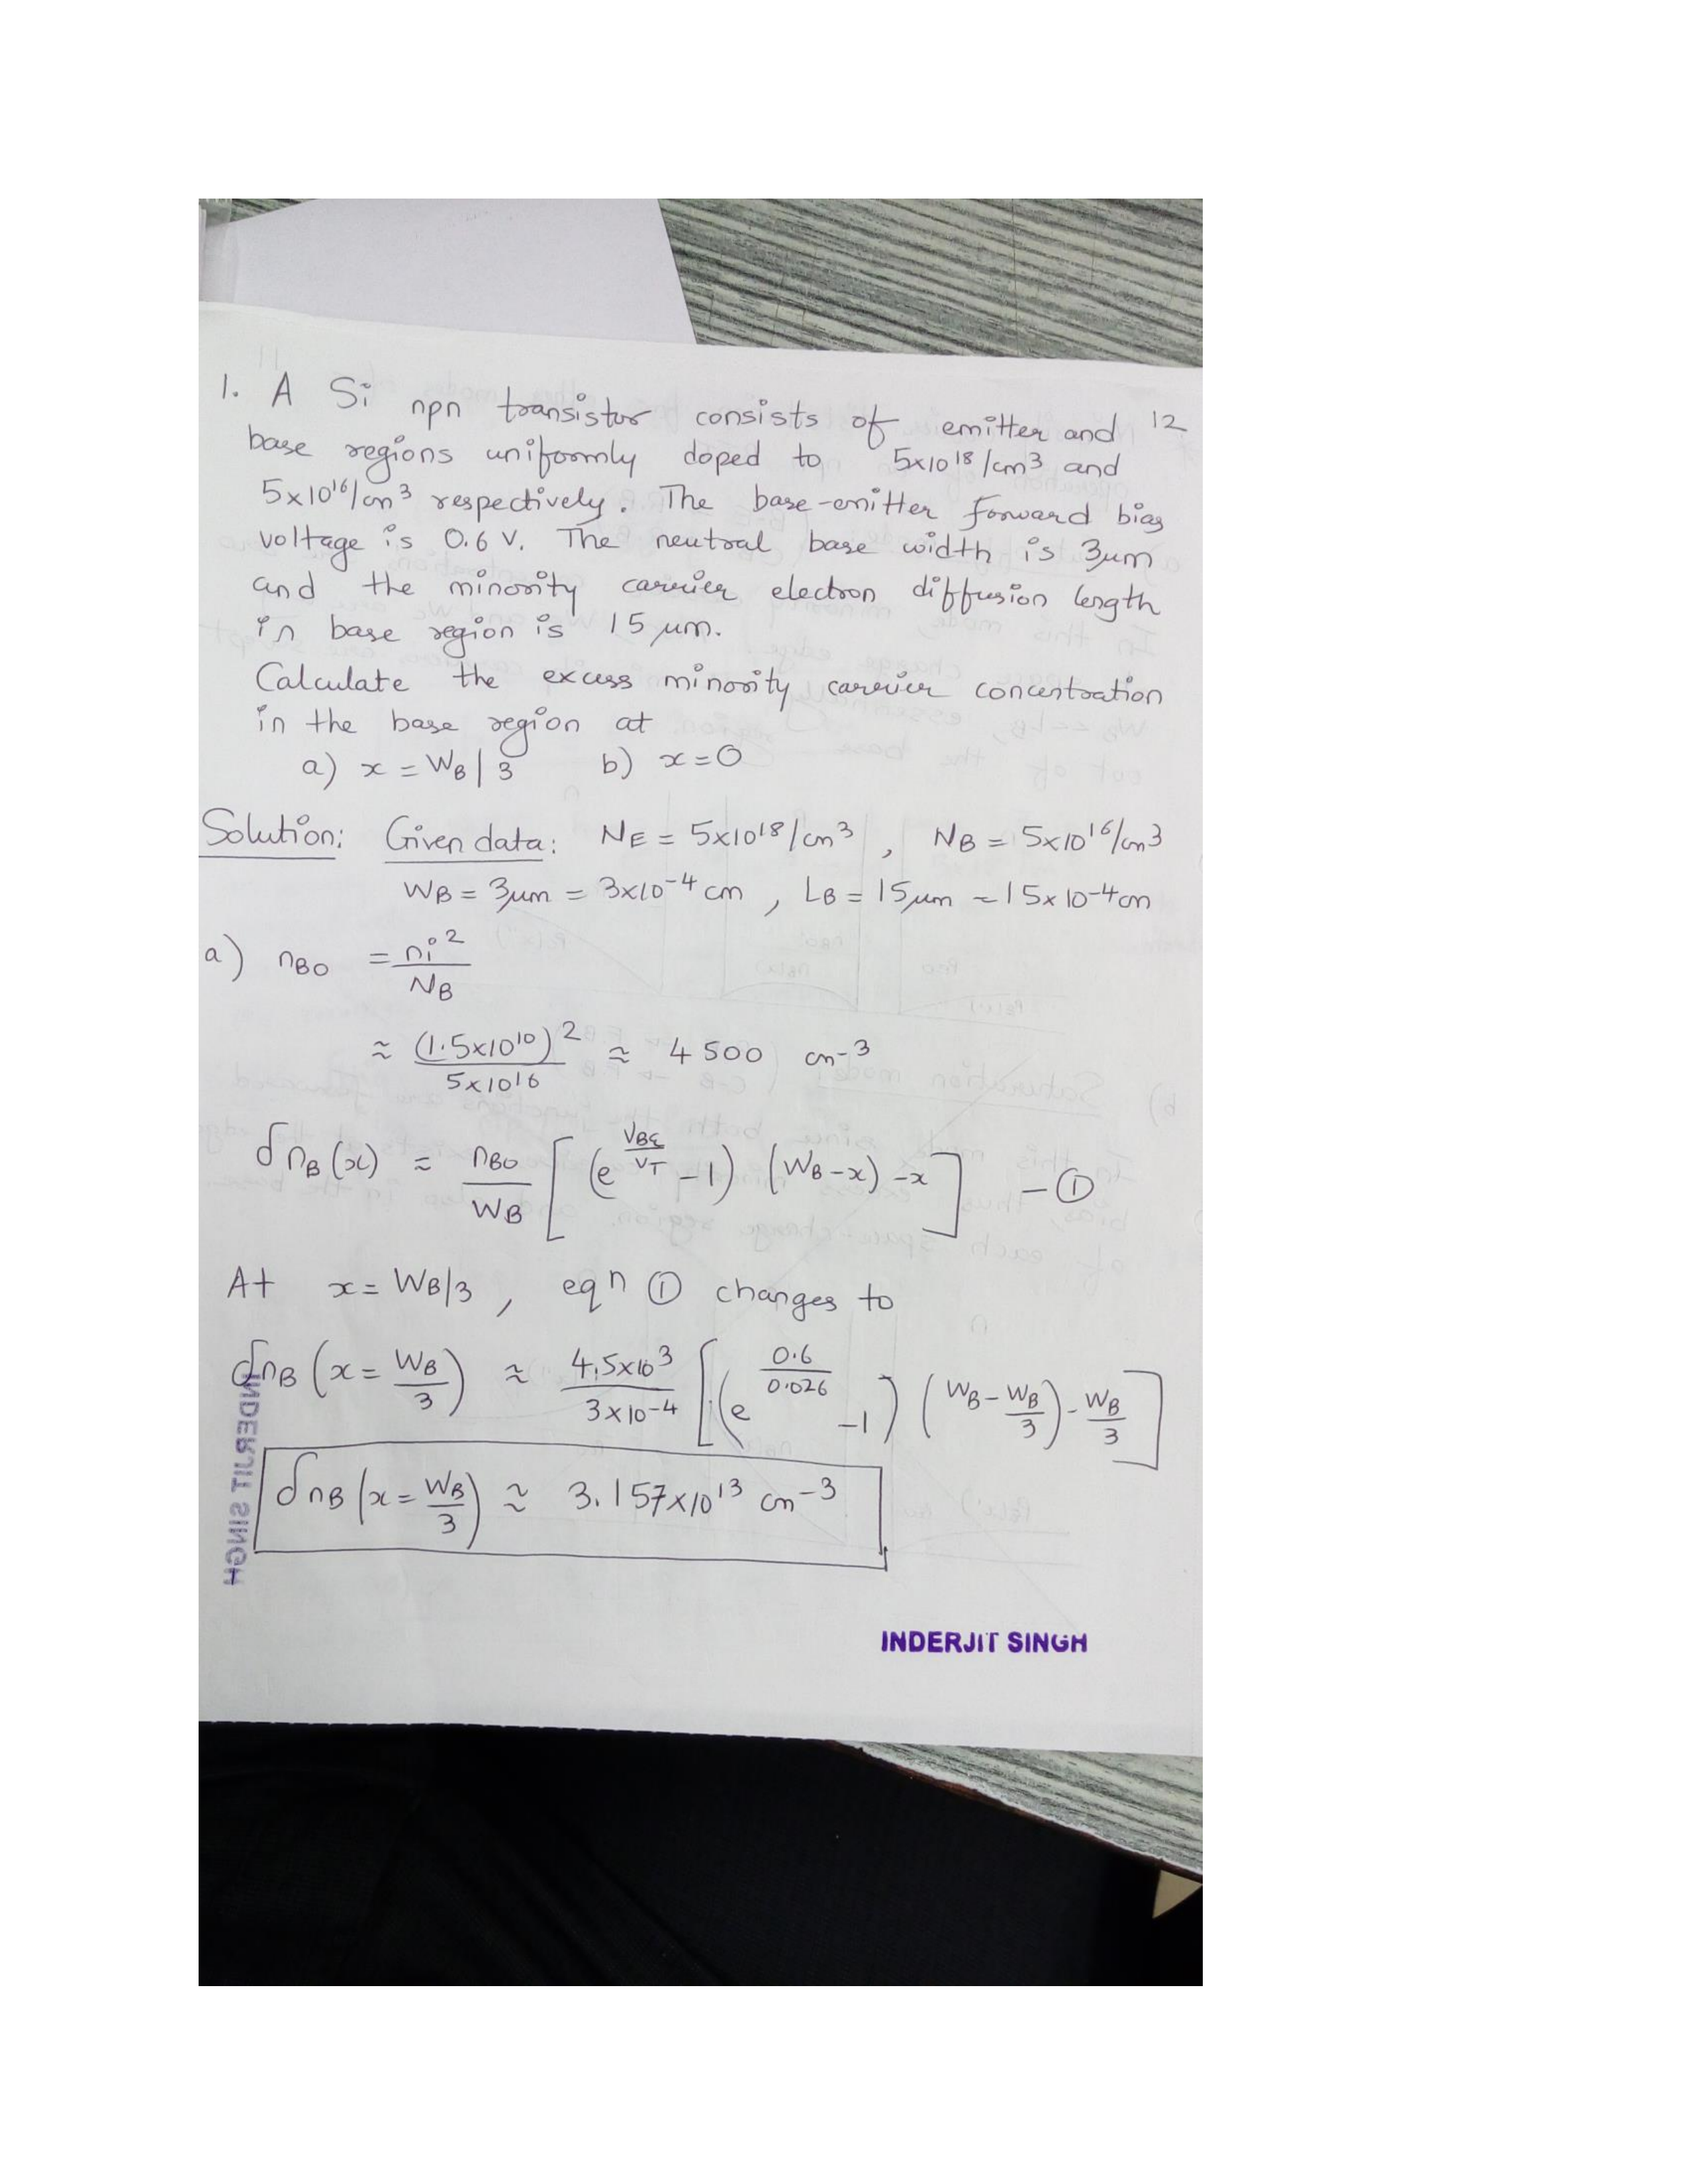 1. A Si npn transistor consists of emitter and 12
base regions uniformly doped to 5x10¹⁸/cm³ and
5x10¹⁶/cm³ respectively. The base-emitter forward bias
voltage is 0.6 V. The neutral base width is 3μm
and the minority carrier electron diffusion length
in base region is 15 μm.
Calculate the excess minority carrier concentration
in the base region at
a) x = W_B | 3 b) x = 0
Solution: Given data: N_E = 5x10¹⁸/cm³ , N_B = 5x10¹⁶/cm³
W_B = 3μm = 3x10⁻⁴ cm , L_B = 15μm = 15x10⁻⁴cm
a) n_B0 = ni²/N_B
≈ (1.5x10¹⁰)²/5x10¹⁶ ≈ 4500 cm⁻³
δn_B(x) ≈ n_B0/W_B [(e^(V_BE/V_T) -1) (W_B-x) -x] - ①
At x = W_B/3 , eqn ① changes to
δn_B (x = W_B/3) ≈ 4.5x10³/3x10⁻⁴ [(e^(0.6/0.026) -1) (W_B - W_B/3) - W_B/3]
δn_B (x = W_B/3) ≈ 3.157x10¹³ cm⁻³
INDERJIT SINGH
INDERJIT SINGH